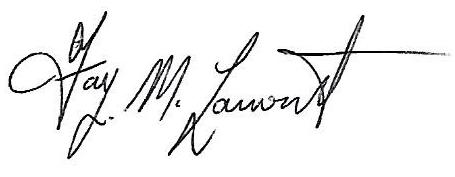 Fay M. Lamont